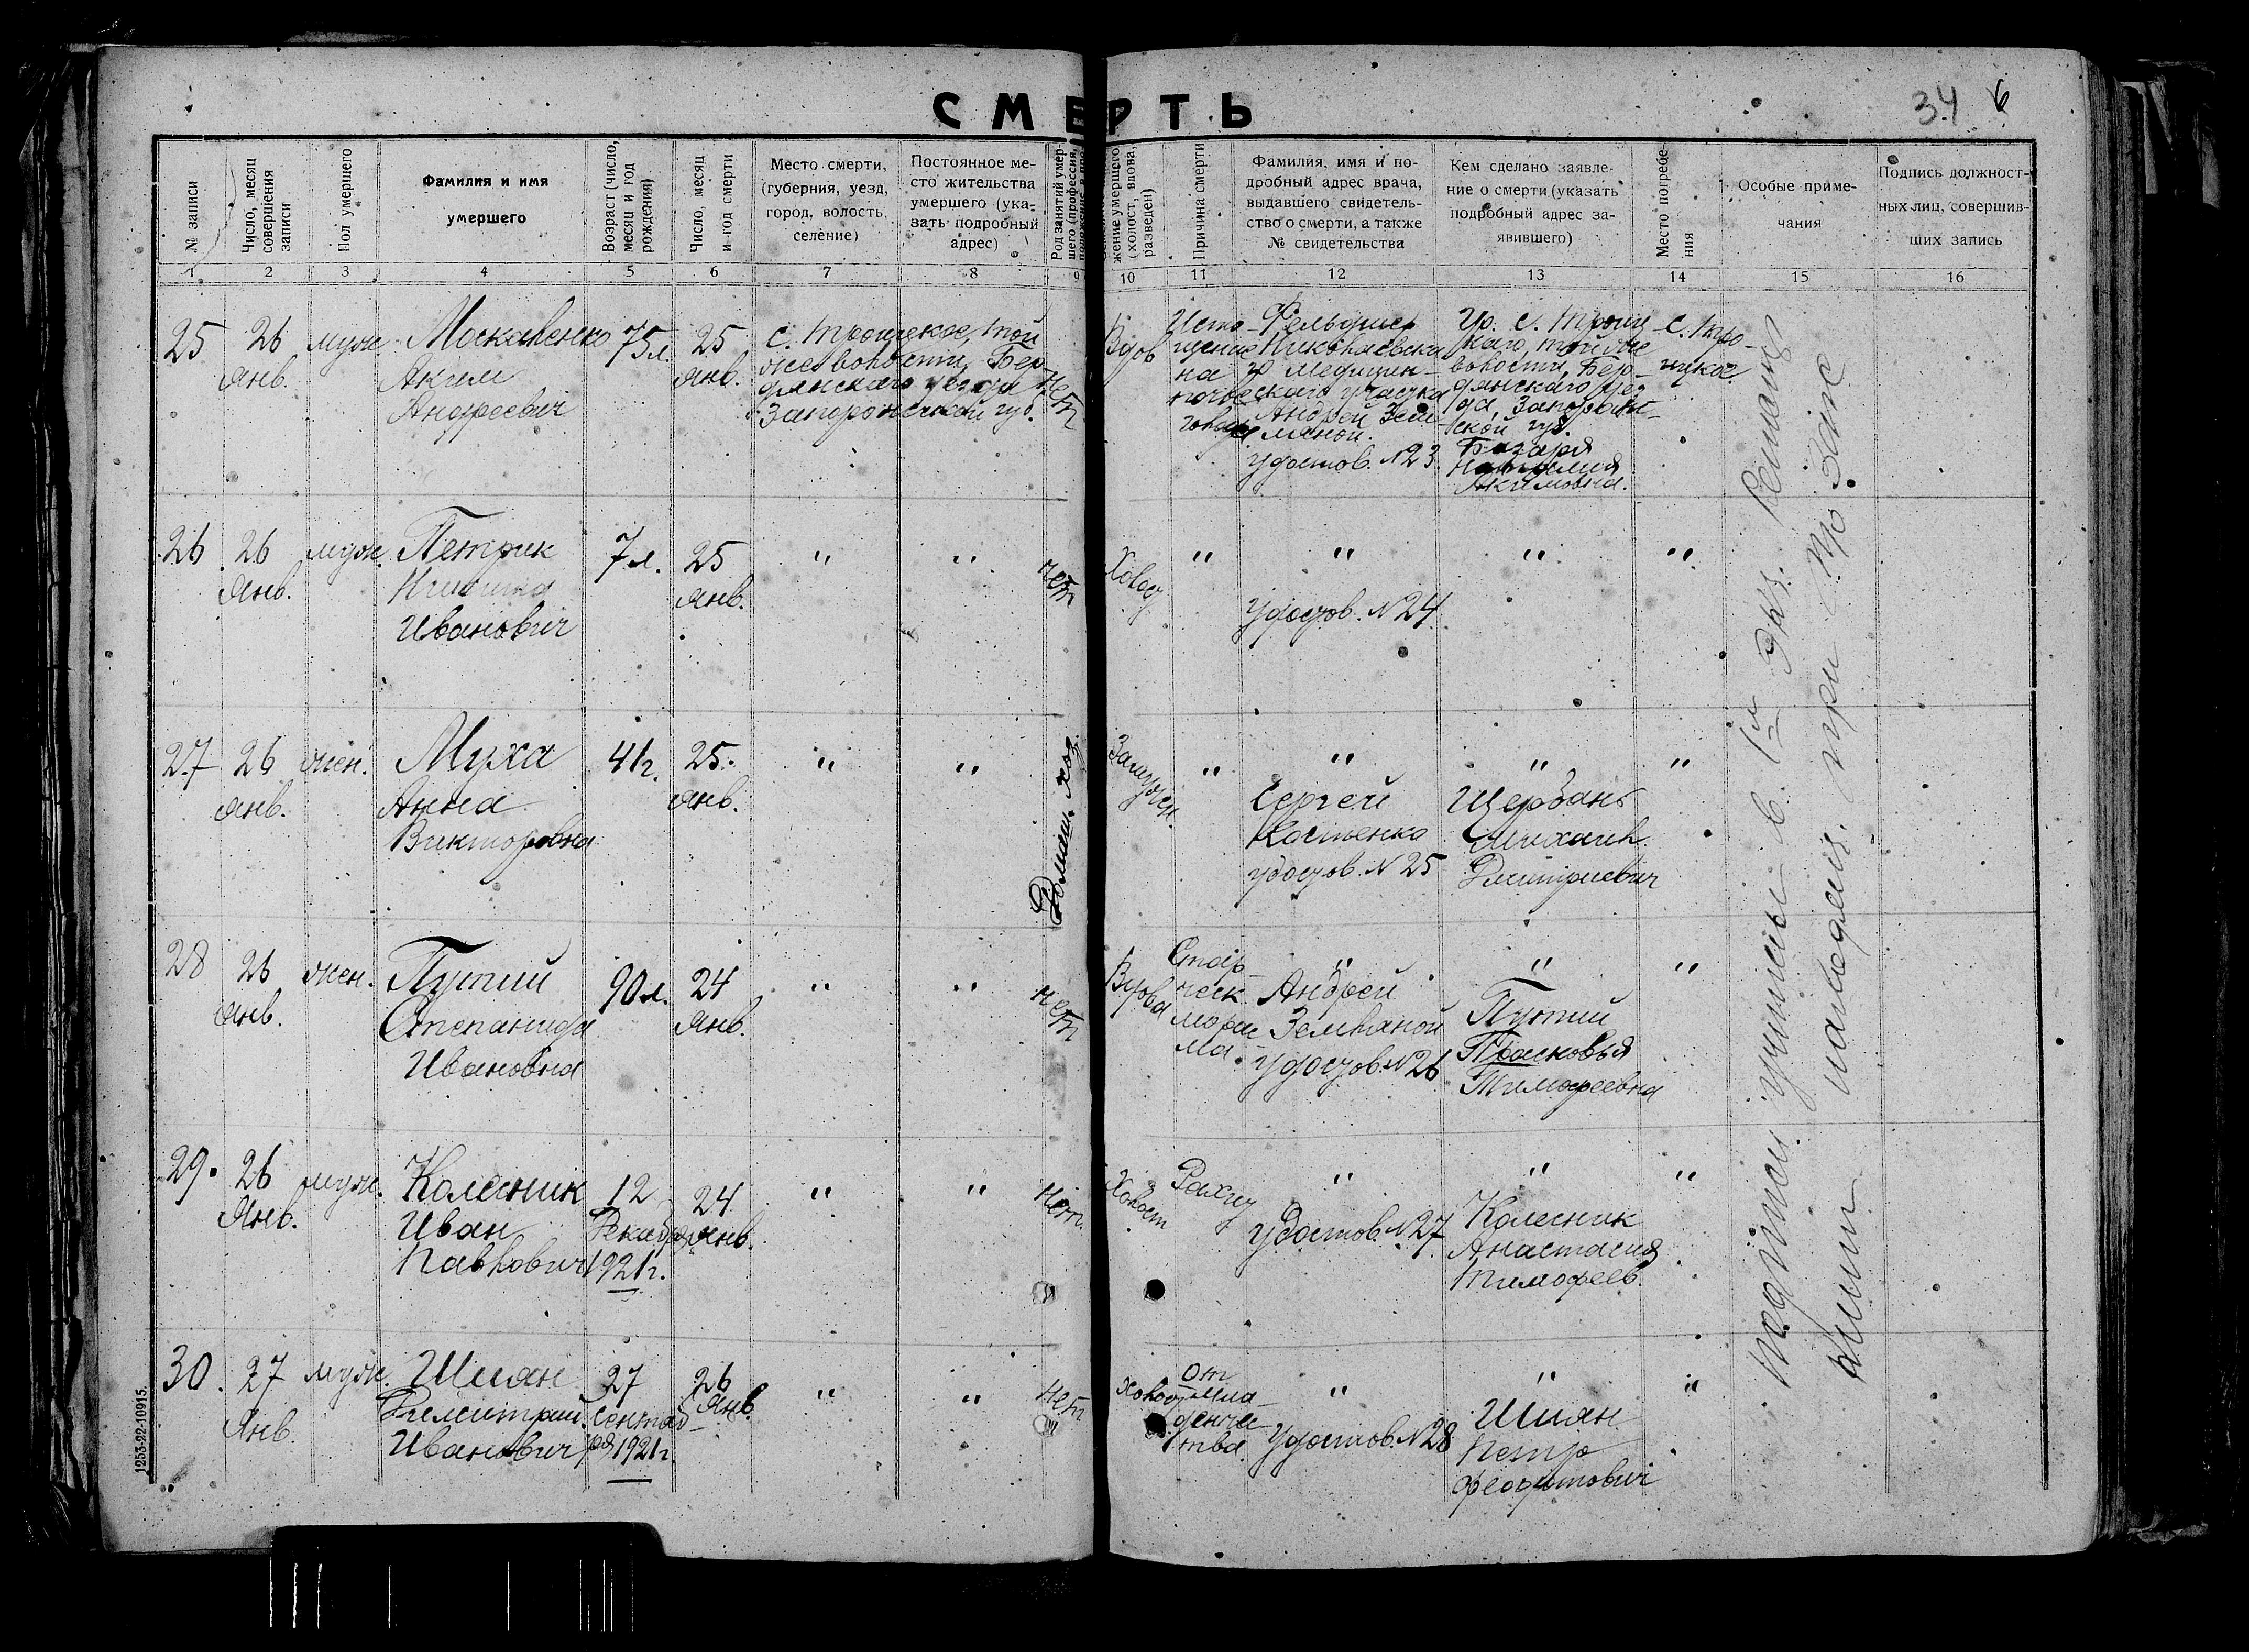 СМЕРТЬ
34 6
№ записи
Число, месяц совершения записи
Пол умершего
Фамилия и имя
умершего
Возраст (число, месяц и год рождения)
Число, месяц и год смерти
Место смерти,
(губерния, уезд,
город, волость,
селение)
Постоянное ме-
сто жительства
умершего (ука-
зать подробный
адрес)
Род занятий умер-
шего (профессия,
жение умершего
(холост, вдова,
разведен)
Причина смерти
Фамилия, имя и по-
дробный адрес врача,
выдавшего свидетель-
ство о смерти, а также
№ свидетельства
Кем сделано заявле-
ние о смерти (указать
подробный адрес за-
явившего)
Место погребе-
ния
Особые приме-
чания
Подпись должност-
ных лиц, совершив-
ших запись
1 2 3 4 5 6 7 8 9 10 11 12 13 14 15 16
25
26
Янв.
муж.
Москаленко
Аким
Андреевич
75 л.
25
Янв.
с. Троицкое, той
же волости, Бер-
дянскаго уезда
Запорожской губ.
Нет
Вдов
Исто-
щение
на
Фельдшер
Николаевска
го медицин-
скаго участка
Андрей Зем-
ляной.
удостов. №23.
Гр. с. Троиц
каго, той же
волости, Бер-
дянскаго уез
да, Запорож-
ской губ.
Наталия
Акимовна.
с. Тро-
ицкое.
26
26
Янв.
муж.
Петрик
Иванович
7 л.
25
Янв.
"
"
Нет
Холост
"
"
удостов. №24.
"
"
27
26
Янв.
жен.
Муха
Анна
Викторовна
41 г.
25.
Янв.
"
"
Домаш. хоз.
Замужем.
"
"
Сергей
Костенко
удостов. №25
"
Щербань
Михаил
Дмитриевич
"
28
26
Янв.
жен.
Путий
Степанида
Ивановна
90 л.
24
Янв.
"
"
Нет
Вдова
Стар-
ческ.
"
Андрей
Земляной
удостов. №26
"
Путий
Прасковья
Тимофеевна
"
29.
26
Янв.
муж.
Колесник
Иван
Павлович
12
Декабря
1921 г.
24
Янв.
"
"
Нет.
Холост
Рахит
"
удостов. №27
"
Колесник
Анастасия
Тимофеев.
"
30.
27
Янв.
муж.
Шиян
Димитрий
Иванович
27
Сентяб-
ря 1921 г.
26
Янв.
"
"
Нет
Холост
От
мла-
денче-
тва
"
удостов. №28
"
Шиян
Петр
"
1253-22-10915.